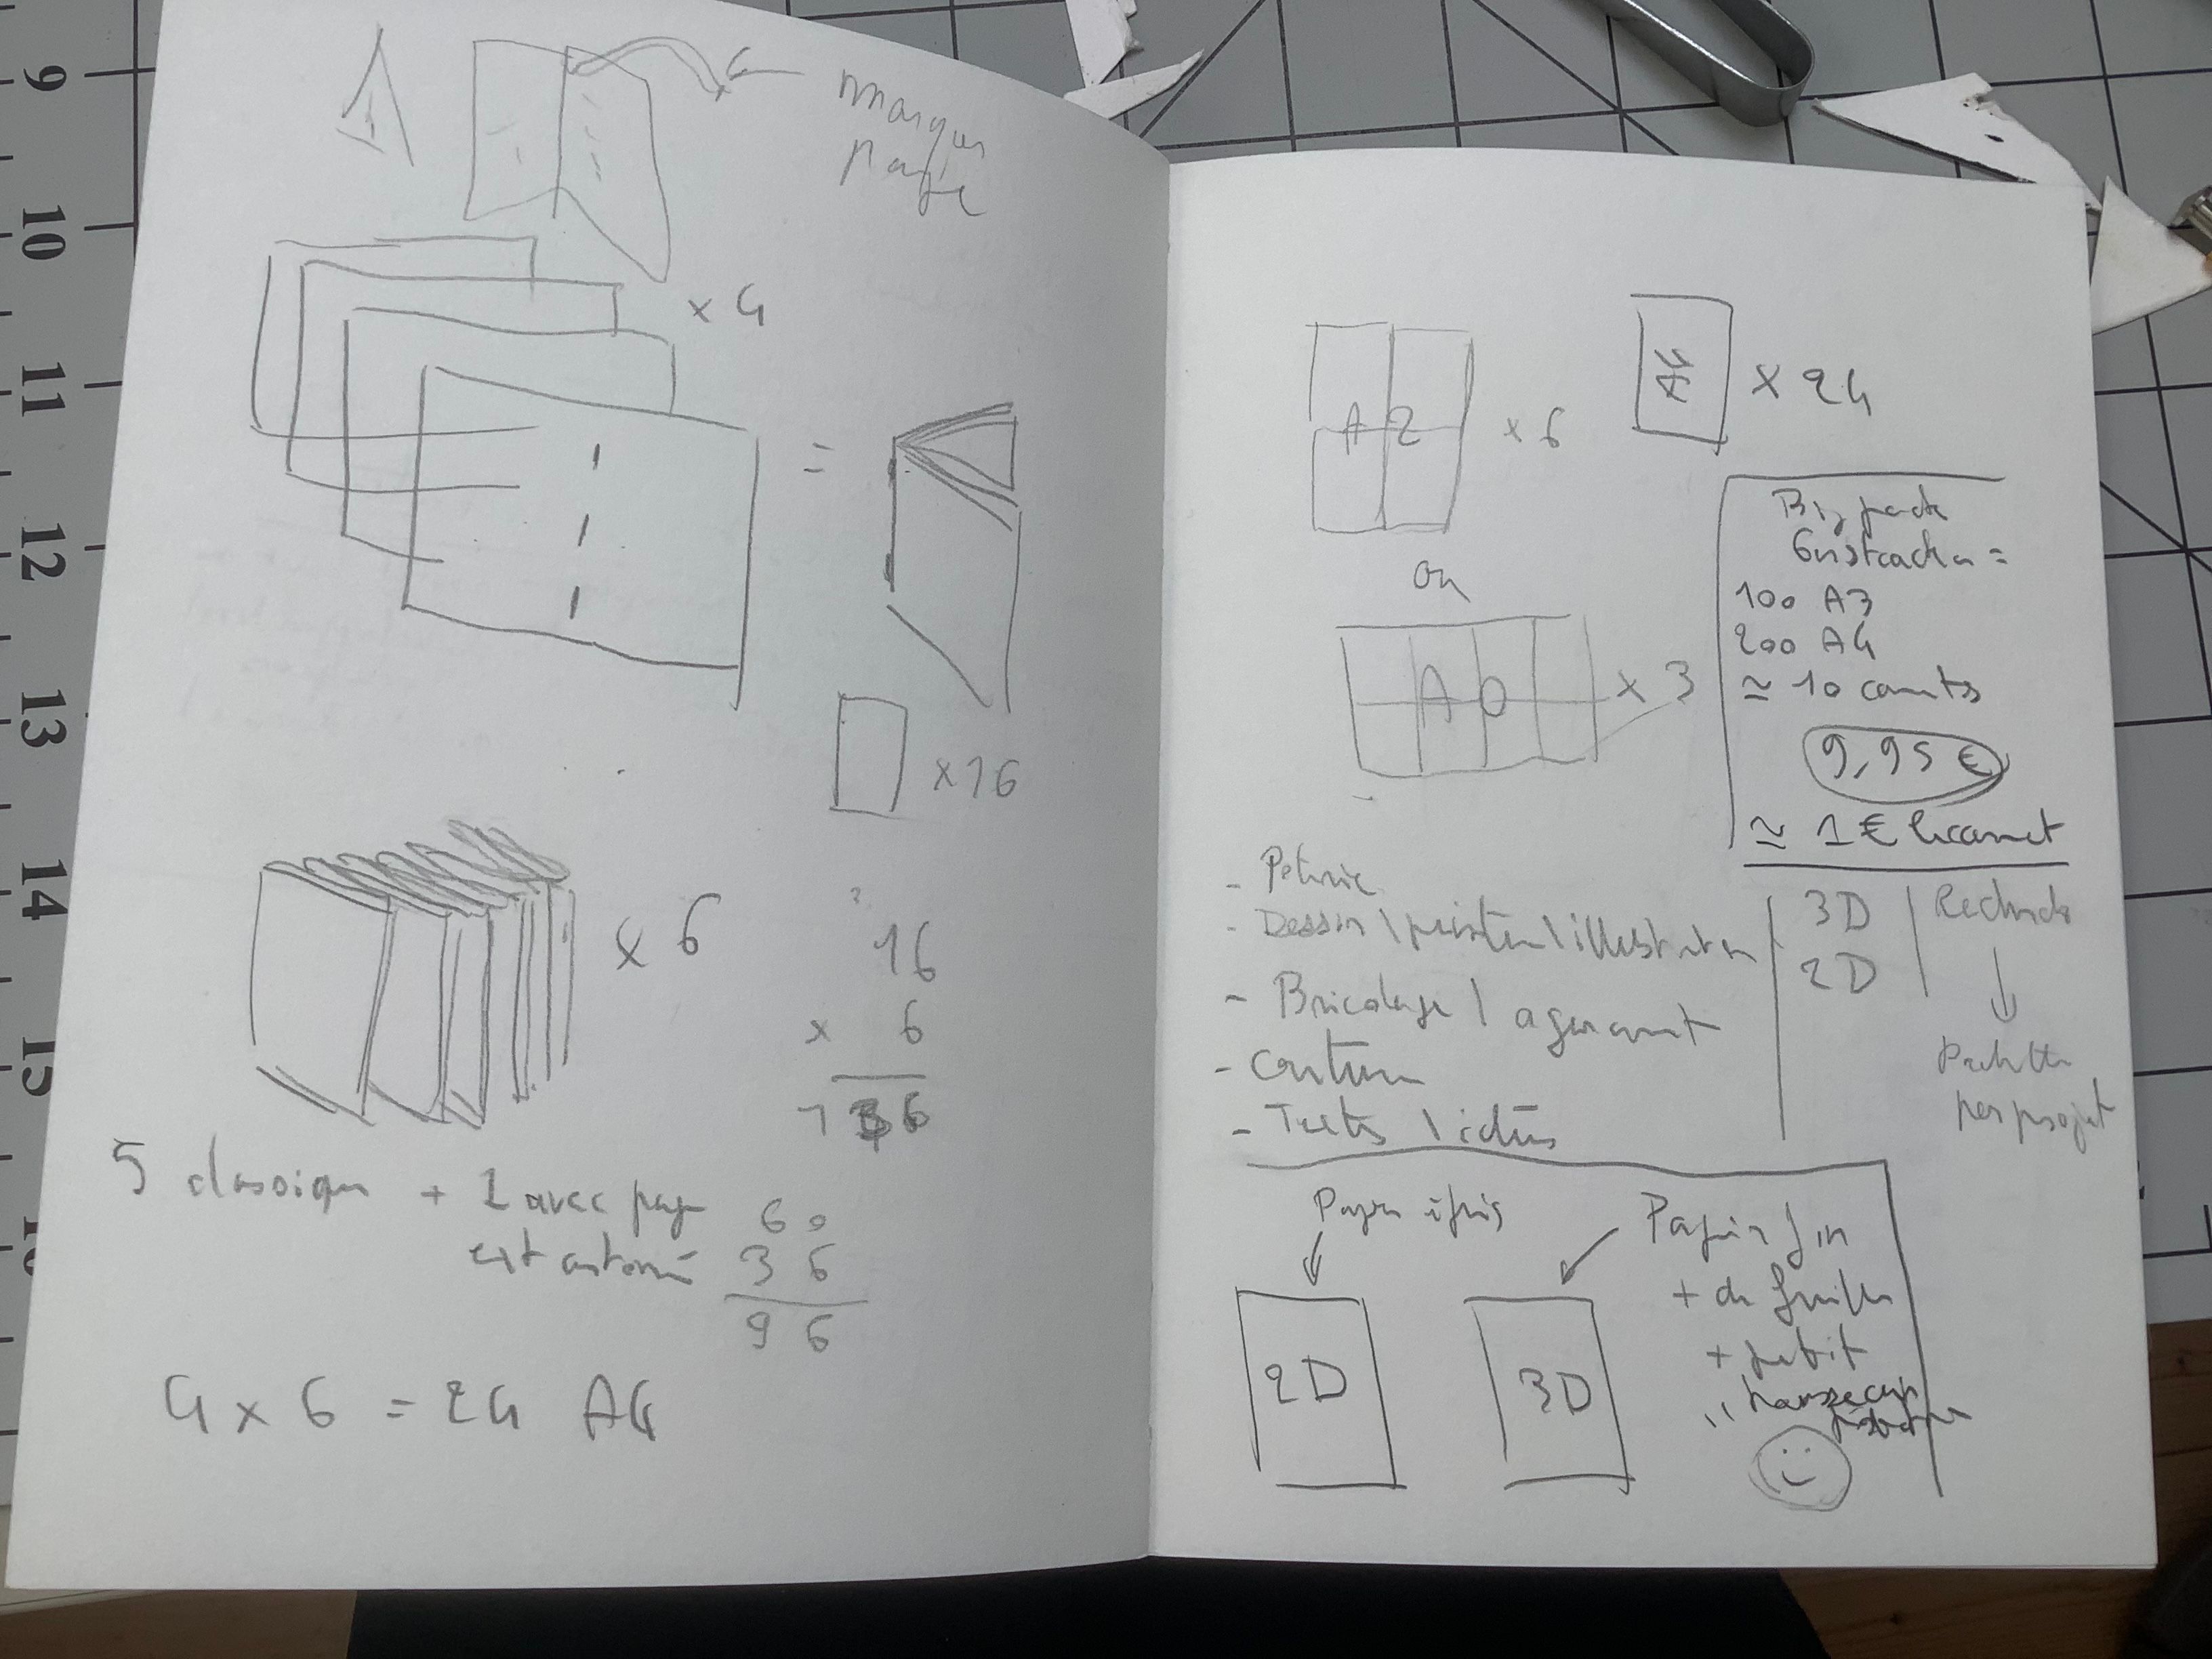 9
10
11
12
13
14
15
marque
page
x 4
=
x 16
x 6
16
x 6
136
5 classique + 1 avec page
60
36
96
4 x 6 = 24 A4
A2
x 6
A4
x 24
ou
A0
x 3
100 A3
200 A4
≃ 10 carnets
9,95 €
≃ 1 € le carnet
- Dessin \ peinture \ illustration
- Bricolage \ agencement
- Couture
- Textes \ idées
3D
2D
Recherche
Palette
par projet
Papier épais
2D
3D
Papier fin
+ de feuilles
+ petit